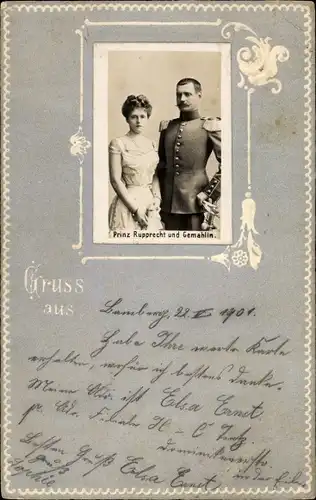 Prinz Rupprecht und Gemahlin.
Gruss
aus
Bamberg, 22. V 1901.
Habe Ihre werte Karte
erhalten, wofür ich bestens danke.
Meine Adr. ist Elsa Ernst
p. Adr. Filiale H. C
Besten Gruß Elsa Ernst